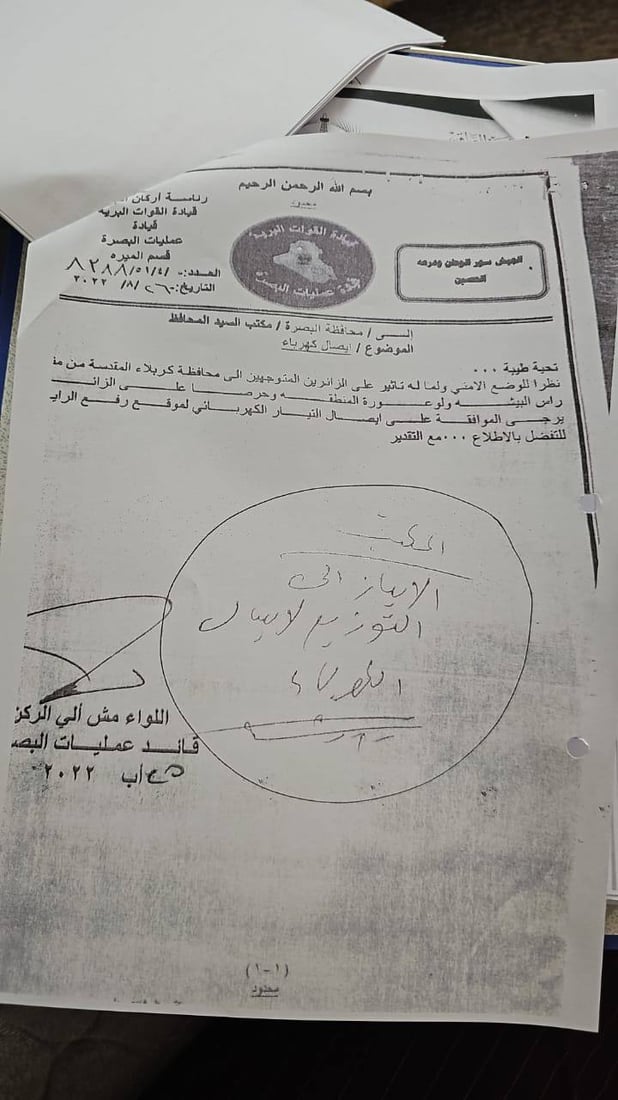 بسم الله الرحمن الرحيم
محدود
رئاسة اركان
قيادة القوات البرية
قيادة
عمليات البصرة
قسم الميره
العدد:- ٨٢٨٨/٥١/٤/
التاريخ:- ٢٦/٨/٢٠٢٢
قيادة القوات البرية
قيادة عمليات البصرة
الجيش سور للوطن ودرعه
الحصين
الى / محافظة البصرة / مكتب السيد المحافظ
الموضوع / ايصال كهرباء
تحية طيبة ...
نظرا للوضع الامني ولما له تاثير على الزائرين المتوجهين الى محافظة كربلاء المقدسة من
راس البيشه ولوعورة المنطقه وحرصا على
يرجى الموافقة على ايصال التيار الكهربائي لموقع رفع
للتفضل بالاطلاع ...مع التقدير
المكتب
الايعاز الى
التوزيع لايصال
الكهرباء
اللواء مش آلي الركن
قائد عمليات
آب ٢٠٢٢
(١-١)
محدود